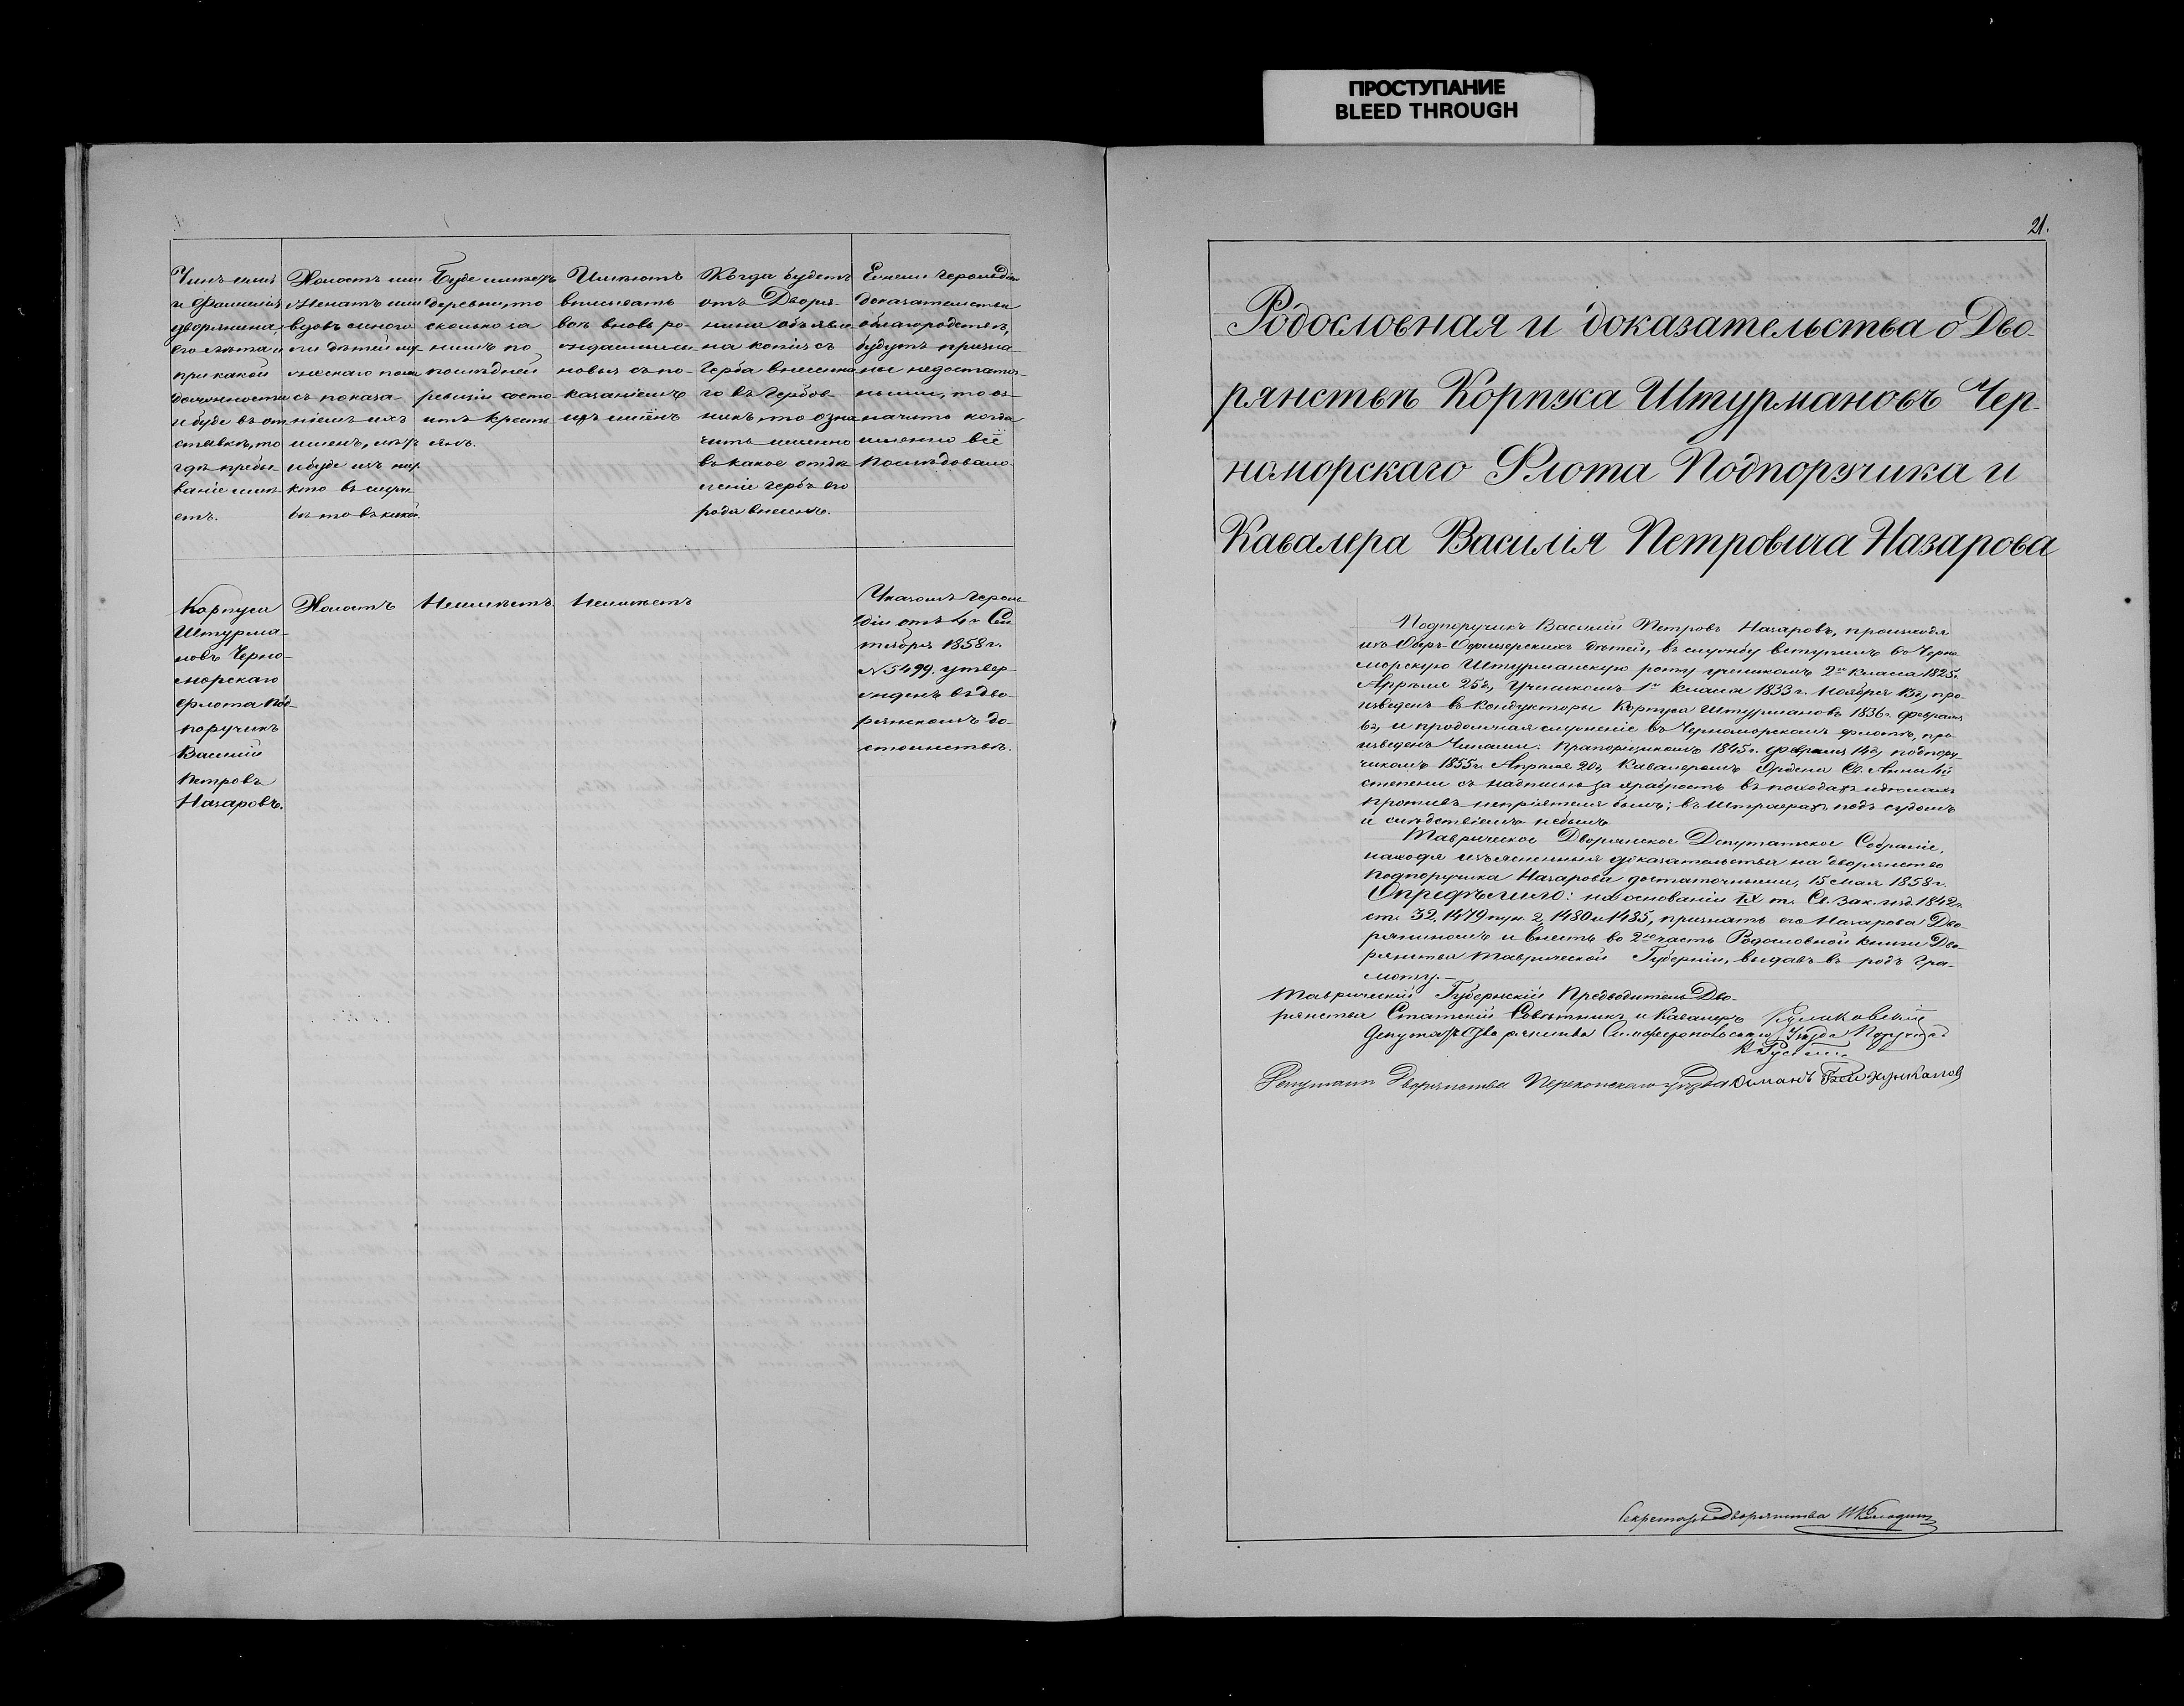 ПРОСТУПАНИЕ
BLEED THROUGH
Чинъ имя
и Фамилія
дворянина,
его лѣта и
при какой
должности
и буде въ от
ставкѣ, то
гдѣ пребы
ваніе имѣ
етъ.
Холостъ или
Женатъ или
вдовъ много
ли дѣтей му
жескаго пола
съ показа-
ніемъ ихъ
именъ, лѣтъ
и буде изъ них
кто въ служ
бѣ то въ какой.
Буде имѣетъ
деревни, то
сколько за
нимъ по
послѣдней
ревизіи состо
итъ крестъ
янъ.
Имѣютъ
вписывать
вновь ро-
ждаемыхъ
по-
казаніемъ
ихъ имёнъ
Когда будетъ
отъ Дворя-
нина объявле
на копія съ
Герба внесенна
го въ Гербов-
никъ, то озна
чить именно
въ какое отдѣ
леніе гербъ его
рода внесенъ.
Если Герольдіи
доказательства
облагородствѣ,
будутъ призна-
ны недостаточ-
ными, то оз-
начить когда
именно всё
послѣдовало.
Корпуса
Штурма-
новъ Черно-
морскаго
флота Под-
поручикъ
Василій
Петровъ
Назаровъ.
Холостъ
Неимѣетъ.
Неимѣетъ
Указомъ Героль
діи отъ 4го Сен
тября 1858 г.
№ 5499. утвер-
жденъ въ дво-
рянскомъ до-
стоинствѣ.
21.
Родословная и доказательства о Дво-
рянствѣ Корпуса Штурмановъ Чер-
номорскаго Флота Подпоручика и
Кавалера Василія Петровича Назарова
Подпоручикъ Василій Петровъ Назаровъ, происходя
изъ Оберъ-Офицерскихъ дѣтей, въ службу вступилъ въ Черно
морскую Штурманскую роту ученикомъ 2го класса 1825 г.
Апрѣля 25го, Ученикомъ 1го класса 1833 г. Ноября 13го, про-
изведенъ въ Кондукторы Корпуса Штурмановъ 1836 г. февраля
6го, и продолжая служеніе въ Черноморскомъ флотѣ, про-
изведенъ Чинами: Прапорщикомъ 1845 г. февраля 14го, подпору-
чикомъ 1855 г. Апрѣля 20го, Кавалеромъ Ордена Св. Анны 4й
степени съ надписью за храбрость въ походахъ и дѣлахъ
противъ непріятеля былъ; въ Штрафахъ подъ судомъ
и слѣдствіемъ небылъ
Таврическое Дворянское Депутатское Собраніе,
находя изъясненныя доказательства на дворянство
Подпоручика Назарова достаточными, 15 Мая 1858 г.
Опредѣлило: на основаніи IX т. Св. Зак. изд. 1842 г.
ст. 32, 1479 пун. 2, 1480 и 1485, признать его Назарова Дво-
ряниномъ и внесть во 2ю часть Родословной книги Дво-
рянства Таврической Губерніи, выдавъ въ родъ Гра-
моту.—
Таврическій Губернскій Предводитель Дво-
рянства Статскій Совѣтникъ и Кавалеръ
Депутатъ Дворянства Симферопольскаго Уѣзда
Депутатъ Дворянства Перекопскаго уѣзда
Секретарь Дворянства